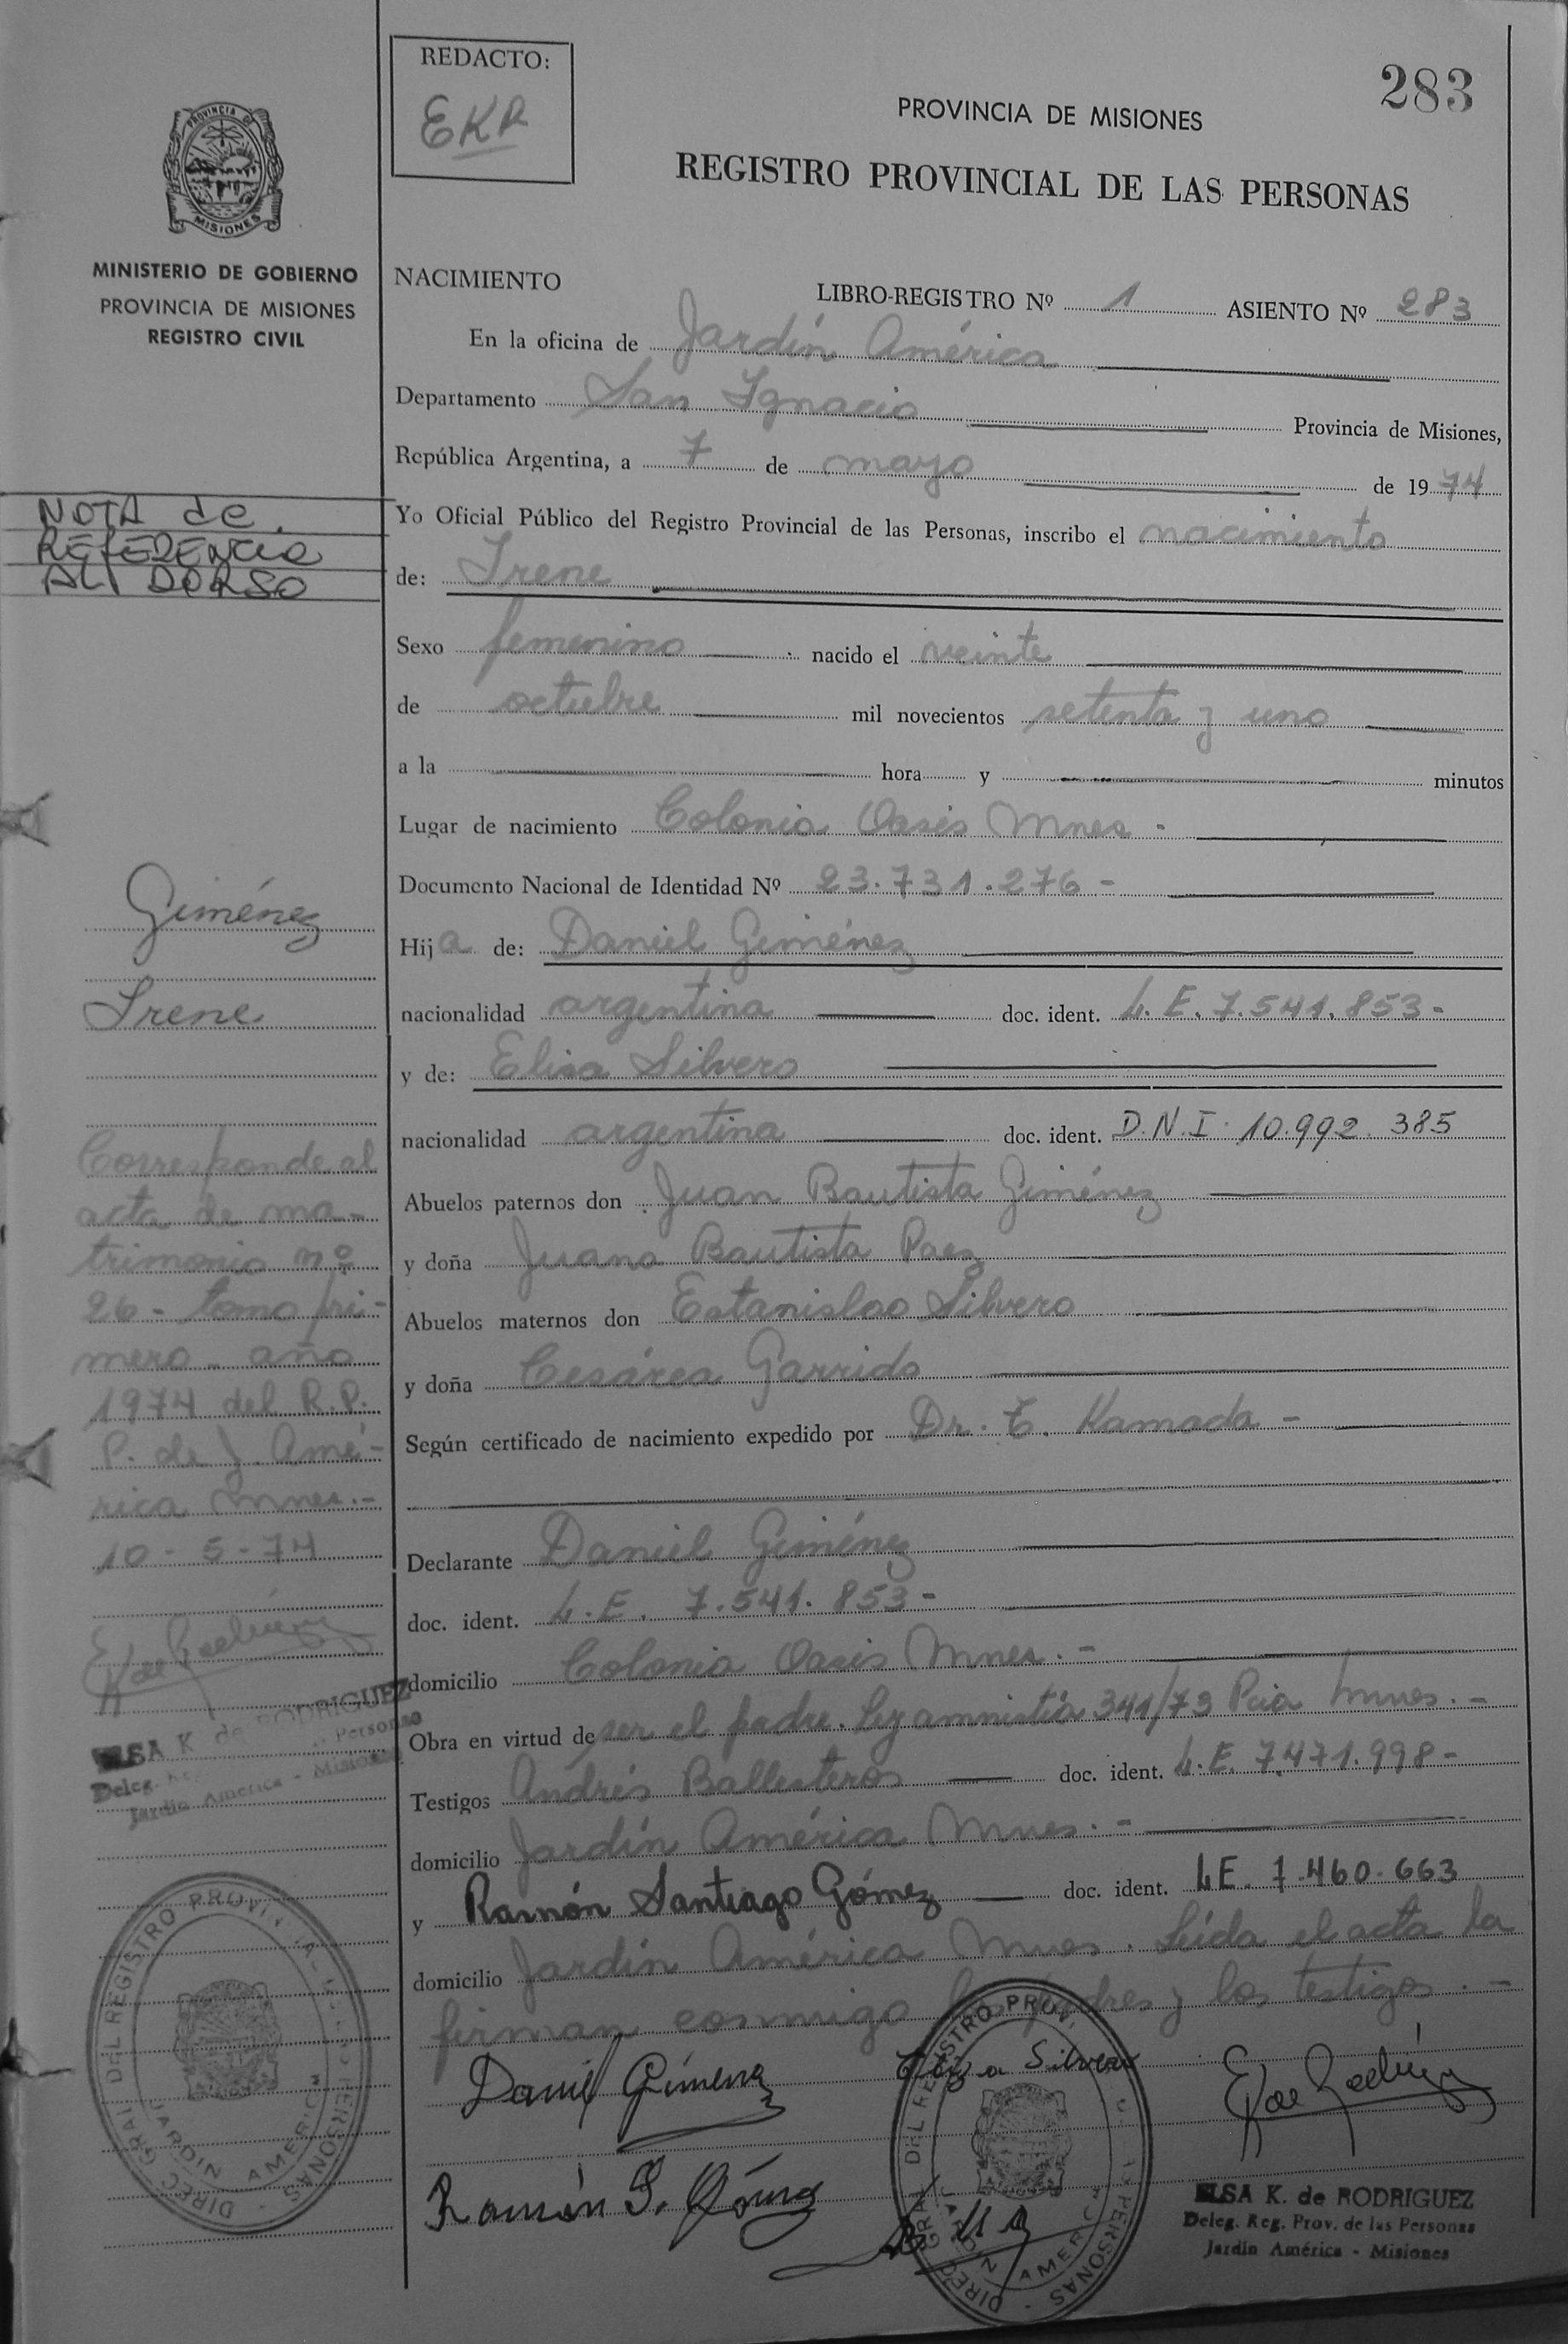 REDACTO:
EKR
283
PROVINCIA DE MISIONES
REGISTRO PROVINCIAL DE LAS PERSONAS
PROVINCIA DE
MISIONES
MINISTERIO DE GOBIERNO
PROVINCIA DE MISIONES
REGISTRO CIVIL
NACIMIENTO
LIBRO-REGISTRO Nº 1 ASIENTO Nº 283
En la oficina de Jardín América
Departamento San Ignacio Provincia de Misiones,
República Argentina, a 7 de mayo de 1974
Yo Oficial Público del Registro Provincial de las Personas, inscribo el nacimiento
de: Irene
NOTA de
REFERENCIA
AL DORSO
Sexo femenino nacido el veinte
de octubre mil novecientos setenta y uno
a la hora y minutos
Lugar de nacimiento Colonia Oasis Mnes -
Documento Nacional de Identidad Nº 23.731.276 -
Hija de: Daniel Giménez
nacionalidad argentina doc. ident. L.E. 7.541.853 -
y de: Elisa Silvero
nacionalidad argentina doc. ident. D.N.I. 10.992.385
Abuelos paternos don Juan Bautista Giménez
y doña Juana Bautista Paez
Abuelos maternos don Estanislao Silvero
y doña Cesárea Garrido
Según certificado de nacimiento expedido por Dr. T. Kamada -
Declarante Daniel Giménez
doc. ident. L.E. 7.541.853 -
domicilio Colonia Oasis Mnes. -
Obra en virtud de ser el padre. Ley amnistía 341/73 Pcia Mnes. -
Testigos Andrés Ballesteros doc. ident. L.E. 7.471.998 -
domicilio Jardín América Mnes. -
y Ramón Santiago Gómez doc. ident. LE. 7.460.663
domicilio Jardín América Mnes. Leída el acta la
firman conmigo los padres y los testigos. -
Giménez
Irene
Corresponde al
acta de ma-
trimonio nº
26 - tomo pri-
mero - año
1974 del R.P.
P. de J. Amé-
rica Mnes. -
10 - 5 - 74
EK de Rodríguez
ELSA K. de RODRIGUEZ
Deleg. Personas
Jardín América - Misiones
DIREC. GRAL. DEL REGISTRO PROV. PERSONAS
JARDIN AMERICA
Daniel Gimenez
Silvero
EK de Rodríguez
Ramón S. Gómez
DIREC. GRAL. DEL REGISTRO PROV. PERSONAS
JARDIN AMERICA
ELSA K. de RODRIGUEZ
Deleg. Reg. Prov. de las Personas
Jardín América - Misiones